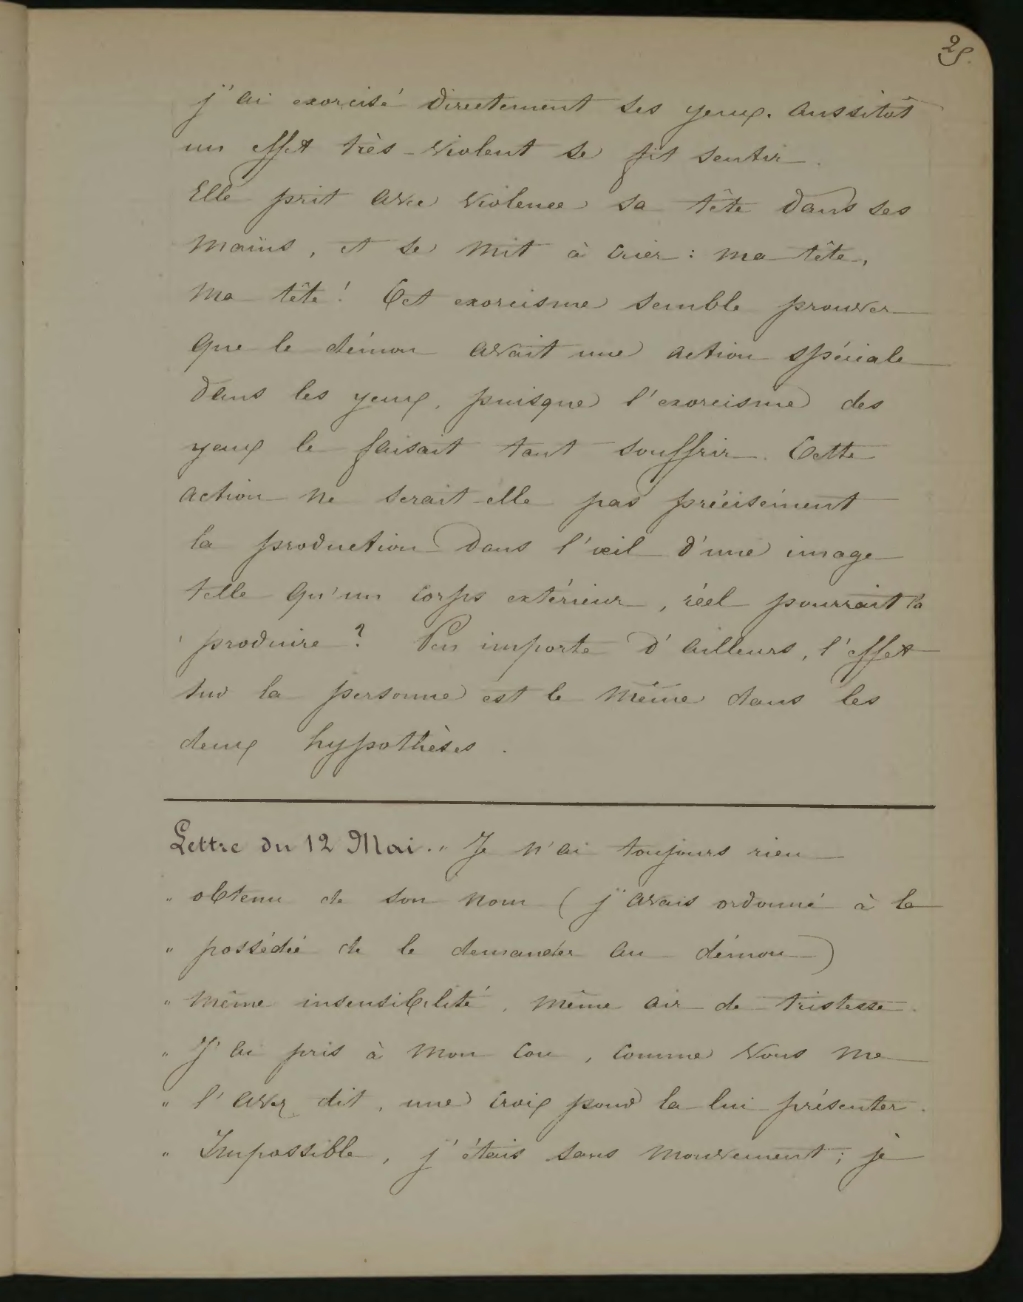 25.
j'ai exorcisé directement ses yeux. aussitôt
un effet très-violent se fit sentir.
Elle prit avec violence sa tête dans ses
mains, et se mit à crier : ma tête,
ma tête ! Cet exorcisme semble prouver
que le démon avait une action spéciale
dans les yeux, puisque l'exorcisme des
yeux le faisait tant souffrir. Cette
action ne serait-elle pas précisément
la production dans l'œil d'une image
telle qu'un corps extérieur, réel pourrait la
produire ? Peu importe d'ailleurs, l'effet
sur la personne est le même dans les
deux hypothèses.
Lettre du 12 Mai. " Je n'ai toujours rien
" obtenu de son nom ( j'avais ordonné à la
" possédée de le demander au démon )
" même insensibilité, même air de tristesse.
" J'ai pris à mon cou, comme vous me
" l'avez dit, une croix pour la lui présenter.
" Impossible, j'étais sans mouvement ; je